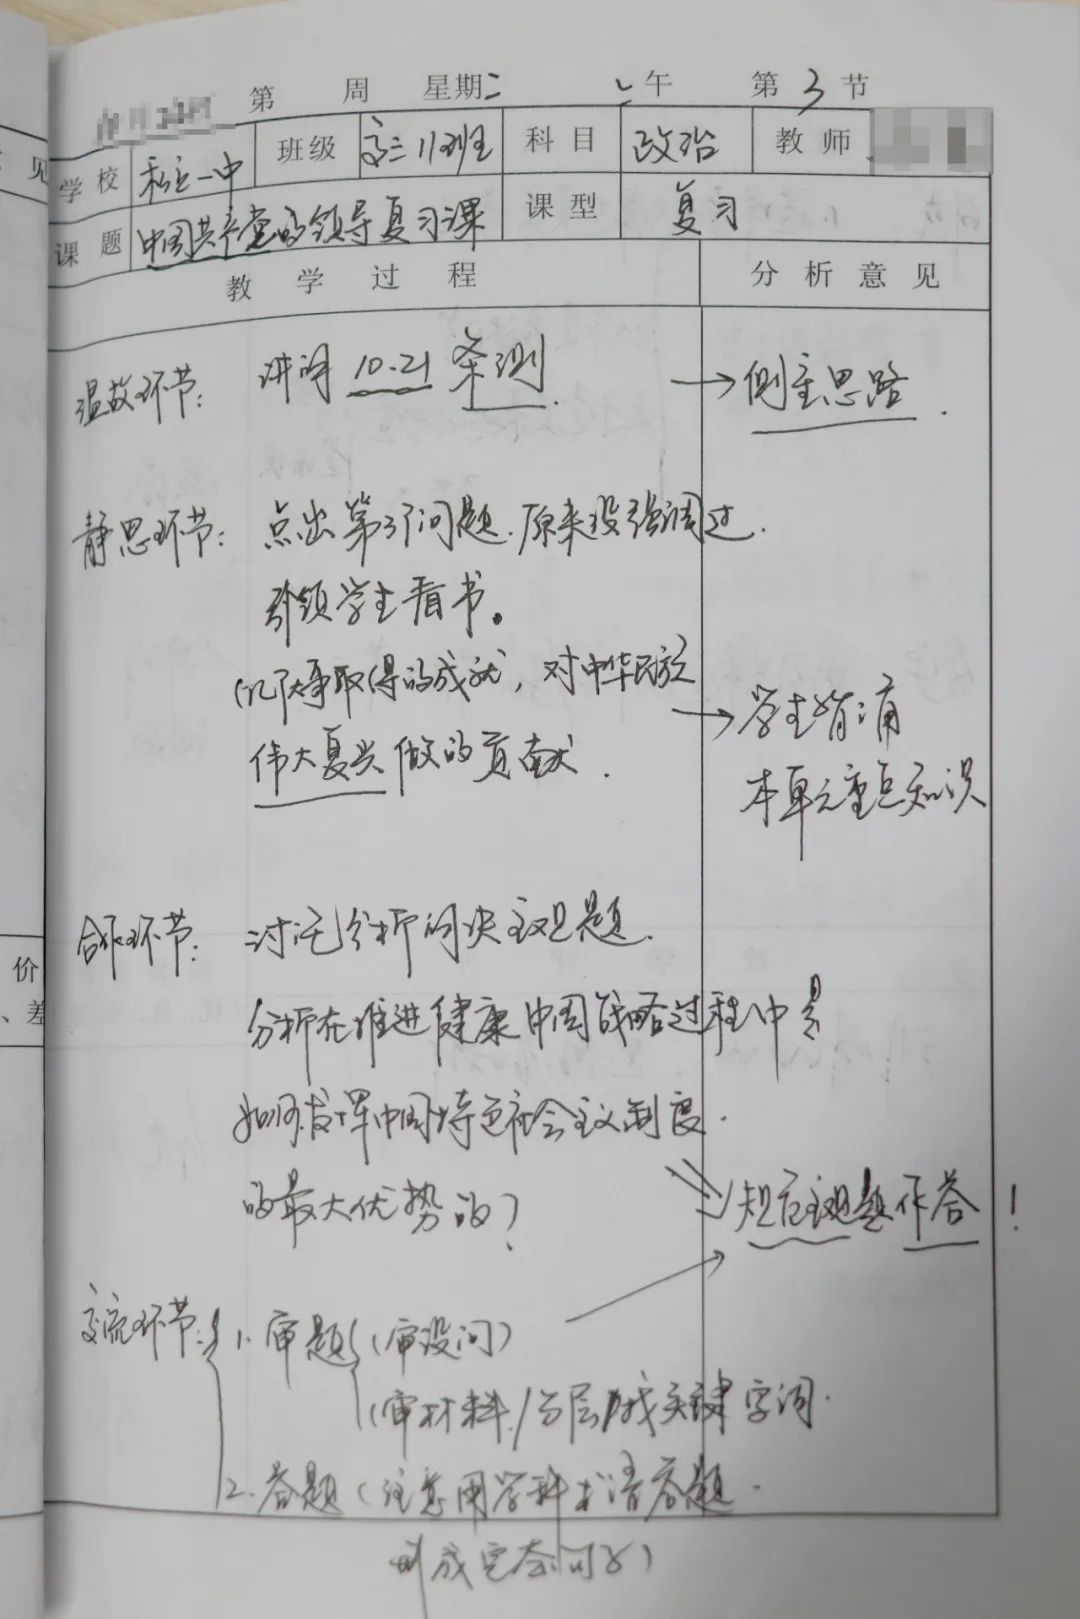 第 周 星期二 午 第3节
学校 私立一中 班级 高三11班 科目 政治 教师
课题 中国共产党的领导复习课 课型 复习
教学过程 分析意见
见
温故环节: 讲评 10.21 条测 → 侧重思路.
静思环节: 点出第3个问题.原来没强调过.
引领学生看书。
取得的成就, 对中华民族
→ 学生
伟大复兴做的贡献.
本单元重点知识
合作环节: 讨论分析 主观题.
价
分析在推进健康中国战略过程中是
、差
如何发挥中国特色社会主义制度.
的最大优势的?
主观题作答!
交流环节: 1. 审题 (审设问)
(审材料/分层/找关键字词.
2. 答题 (注意用学科术语答题.
成完整句子)